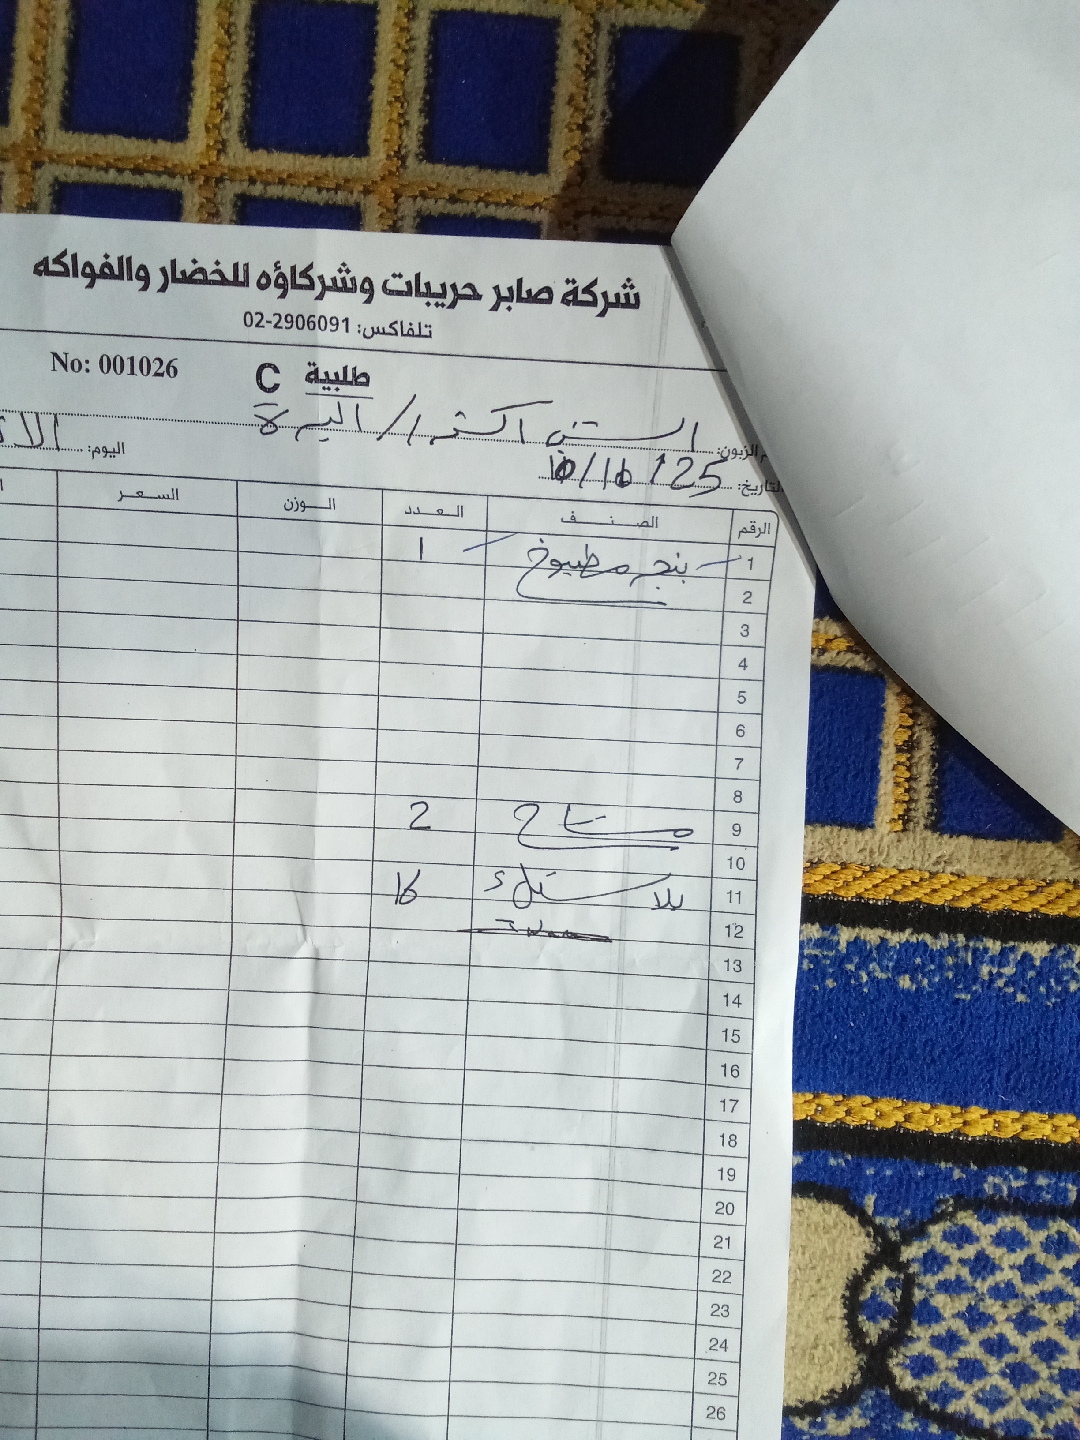 شركة صابر حريبات وشركاؤه للخضار والفواكه
تلفاكس: 02-2906091
No: 001026
طلبية C
الزبون: السنتي اكسترا / البيرة
اليوم:
التاريخ: 25 / 10 / 10
الرقم الصنف العدد الوزن السعر
1 بنجر مطبوخ 1
2
3
4
5
6
7
8
9 مشتاح 2
10
11 بلاستيك 16
12
13
14
15
16
17
18
19
20
21
22
23
24
25
26